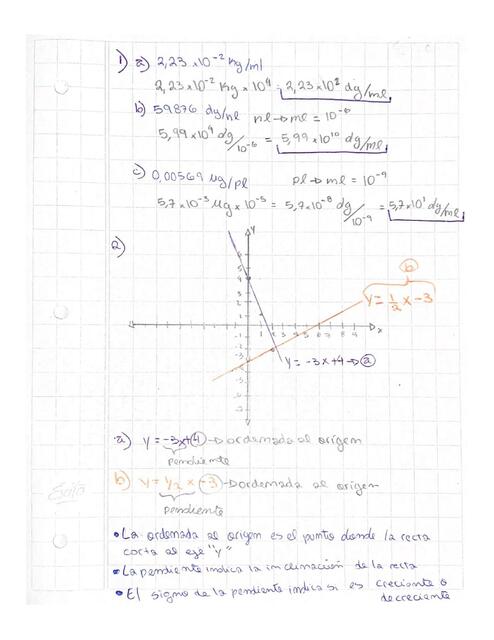 1) a) 2,23 x 10⁻² Kg/ml
2,23 x 10⁻² Kg x 10⁴ = 2,23 x 10² dg/ml
b) 59876 dg/nl nl → ml = 10⁻⁶
5,99 x 10⁴ dg/10⁻⁶ = 5,99 x 10¹⁰ dg/ml
c) 0,00569 µg/pl pl → ml = 10⁻⁹
5,7 x 10⁻³ µg x 10⁻⁵ = 5,7 x 10⁻⁸ dg/10⁻⁹ = 5,7 x 10¹ dg/ml
2)
y
b
y = 1/2 x - 3
x
y = -3x + 4 → a
a) y = -3x + 4 → ordemada al origem
pendiente
b) y = 1/2 x - 3 → ordemada al origem
pendiente
• La ordemada al origem es el punto donde la recta
corta al eje "y"
• La pendiente indica la imclinación de la recta
• El signo de la pendiente indica si es creciente o
decreciente